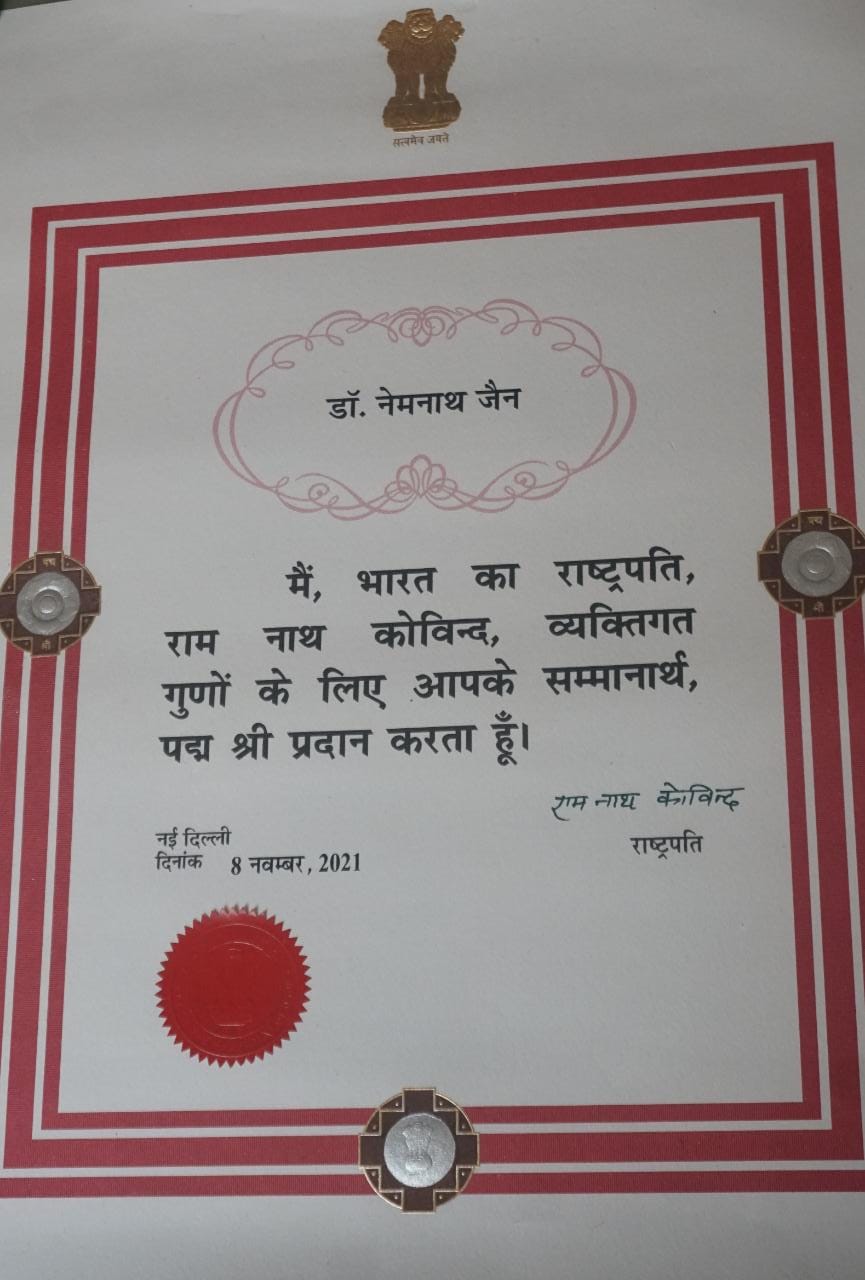 सत्यमेव जयते
डॉ. नेमनाथ जैन
मैं, भारत का राष्ट्रपति,
राम नाथ कोविन्द, व्यक्तिगत
गुणों के लिए आपके सम्मानार्थ,
पद्म श्री प्रदान करता हूँ।
राम नाथ कोविन्द
राष्ट्रपति
नई दिल्ली
दिनांक 8 नवम्बर, 2021
पद्म
श्री
पद्म
श्री